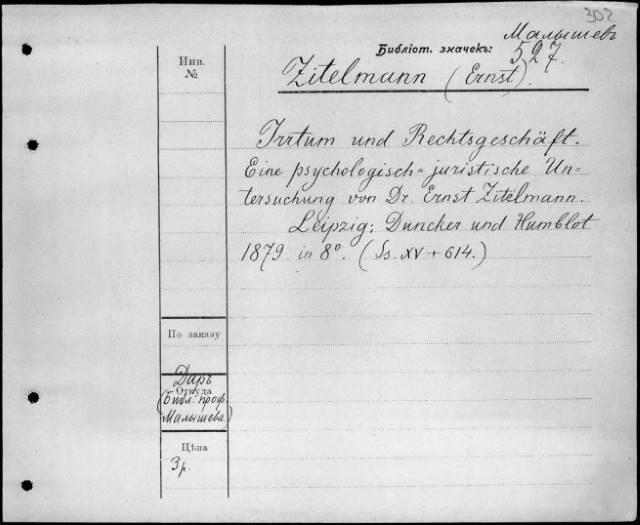 302
Малышевъ
Библіот. значекъ: 527.
Инв.
№
Zitelmann (Ernst).
Irrtum und Rechtsgeschäft.
Eine psychologisch-juristische Un-
tersuchung von Dr. Ernst Zitelmann.
Leipzig: Duncker und Humblot
1879 in 8°. (Ss. XV + 614.)
По заказу
Даръ
Откуда
(Библ. проф.
Малышева)
Цѣна
3 р.